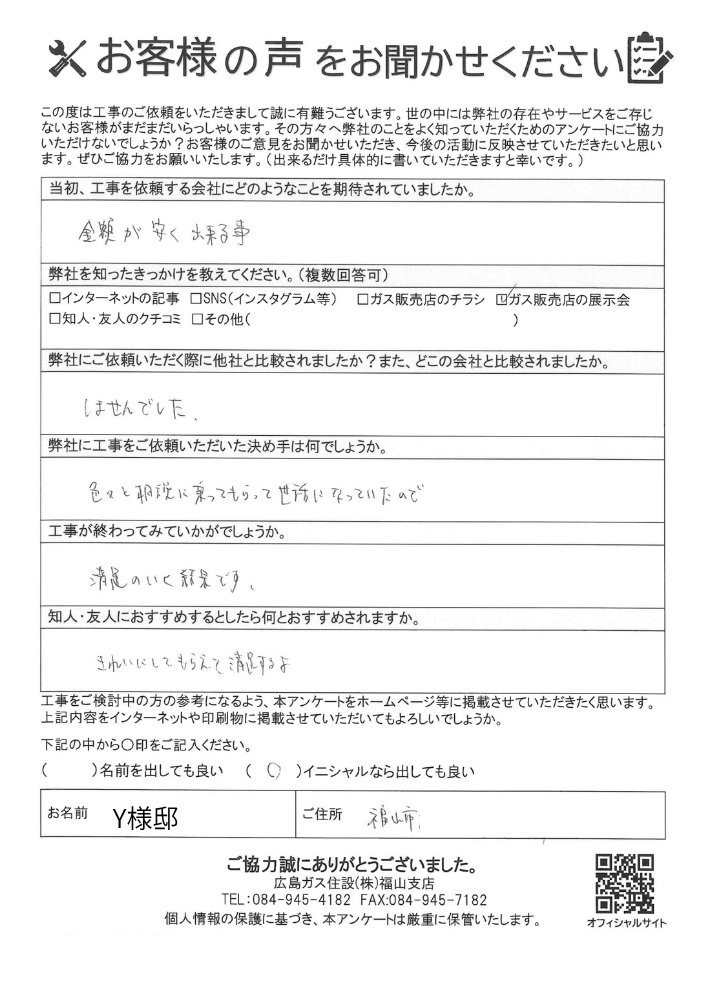 お客様の声をお聞かせください
この度は工事のご依頼をいただきまして誠に有難うございます。世の中には弊社の存在やサービスをご存じ
ないお客様がまだまだいらっしゃいます。その方々へ弊社のことをよく知っていただくためのアンケートにご協力
いただけないでしょうか？お客様のご意見をお聞かせいただき、今後の活動に反映させていただきたいと思い
ます。ぜひご協力をお願いいたします。（出来るだけ具体的に書いていただきますと幸いです。）
当初、工事を依頼する会社にどのようなことを期待されていましたか。
金額が安く出来る事
弊社を知ったきっかけを教えてください。（複数回答可）
□インターネットの記事 □SNS(インスタグラム等） □ガス販売店のチラシ ☑ガス販売店の展示会
□知人・友人のクチコミ □その他( )
弊社にご依頼いただく際に他社と比較されましたか？また、どこの会社と比較されましたか。
しませんでした、
弊社に工事をご依頼いただいた決め手は何でしょうか。
色々と相談に乗ってもらって世話になっていたので
工事が終わってみていかがでしょうか。
満足のいく結果です、
知人・友人におすすめするとしたら何とおすすめされますか。
きれいにしてもらえて満足するよ
工事をご検討中の方の参考になるよう、本アンケートをホームページ等に掲載させていただきたく思います。
上記内容をインターネットや印刷物に掲載させていただいてもよろしいでしょうか。
下記の中から〇印をご記入ください。
( )名前を出しても良い ( ○ )イニシャルなら出しても良い
お名前 Y様邸 ご住所 福山市
ご協力誠にありがとうございました。
広島ガス住設(株)福山支店
TEL:084-945-4182 FAX:084-945-7182
個人情報の保護に基づき、本アンケートは厳重に保管いたします。
オフィシャルサイト